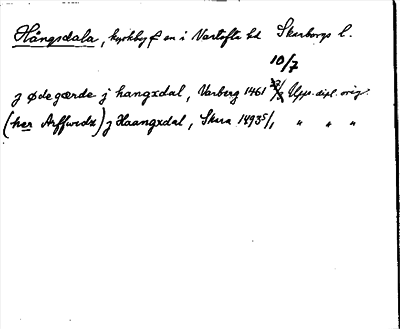 Hångsdala, kyrkby f en i Vartofta hd Skarborgs l.
10/7
j ødegærde j hangxdal, Varberg 1461 Upps. dipl. orig.
(her Arffwidx) j Haangxdal, Skara 1495 5/1 " " "